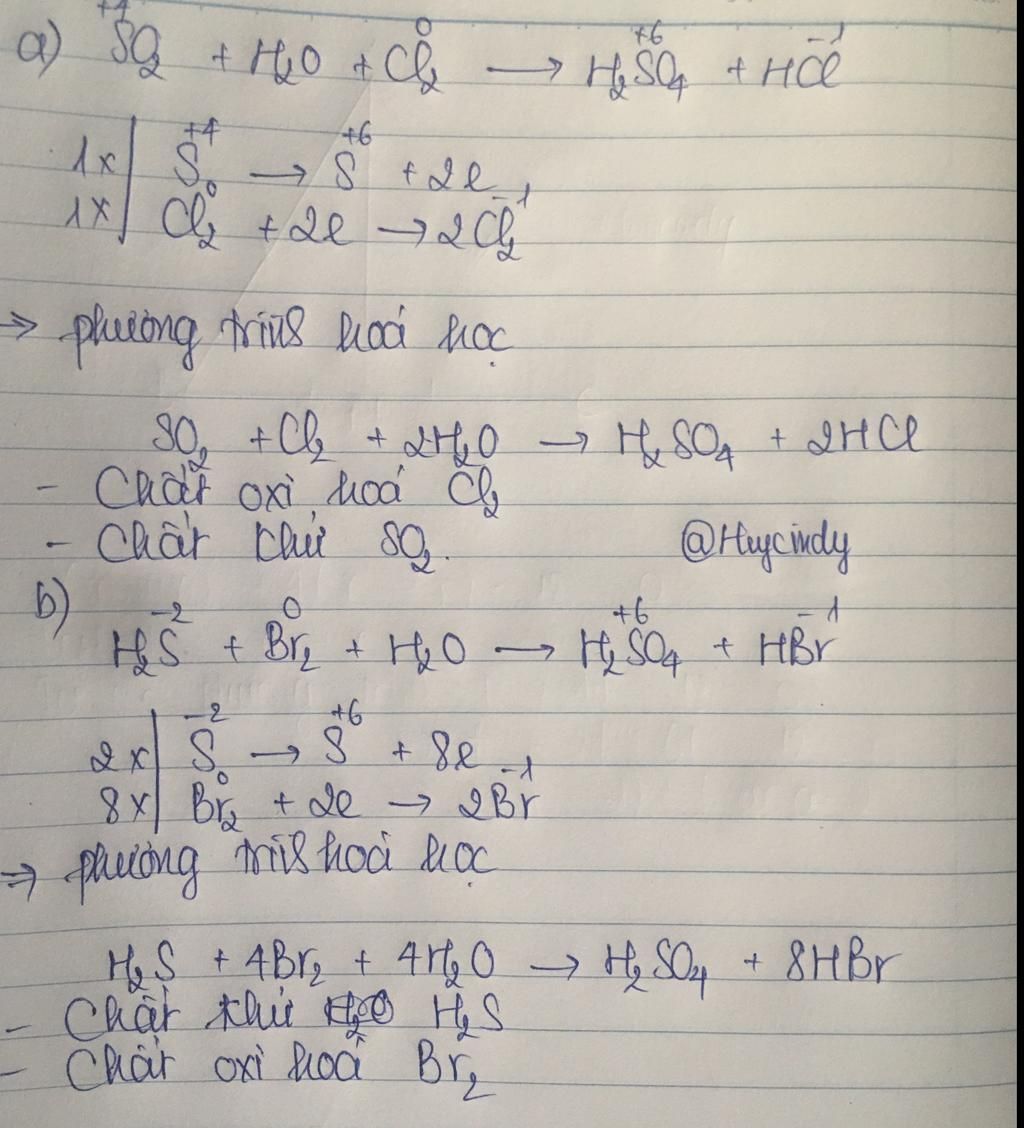 a) +4 0 +6 -1
SO₂ + H₂O + Cl₂ → H₂SO₄ + HCl
+4 +6
1x | S → S + 2e
0 -1
1x | Cl₂ + 2e → 2Cl₂
⇒ phương trình hoá học
SO₂ + Cl₂ + 2H₂O → H₂SO₄ + 2HCl
- Chất oxi hoá Cl₂
- Chất khử SO₂. @Huycindy
b) -2 0 +6 -1
H₂S + Br₂ + H₂O → H₂SO₄ + HBr
-2 +6
2x | S → S + 8e
0 -1
8x | Br₂ + 2e → 2Br
⇒ phương trình hoá học
H₂S + 4Br₂ + 4H₂O → H₂SO₄ + 8HBr
- Chất khử H₂S
- Chất oxi hoá Br₂